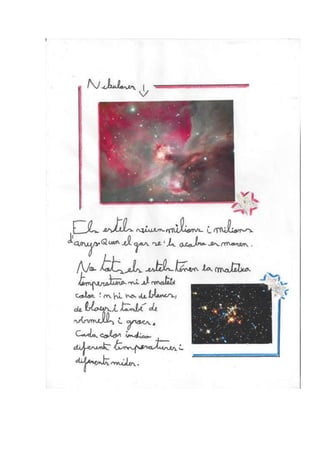 Nebuloses
Els estels viuen milions i milions
d'anys quan el gas se'ls acaba es moren.
No tots els estels tenen la mateixa
temperatura ni el mateix
color: n'hi ha de blancs,
de blaus i també de
vermells i grocs.
Cada color indica
diferents temperatures i
diferents mides.